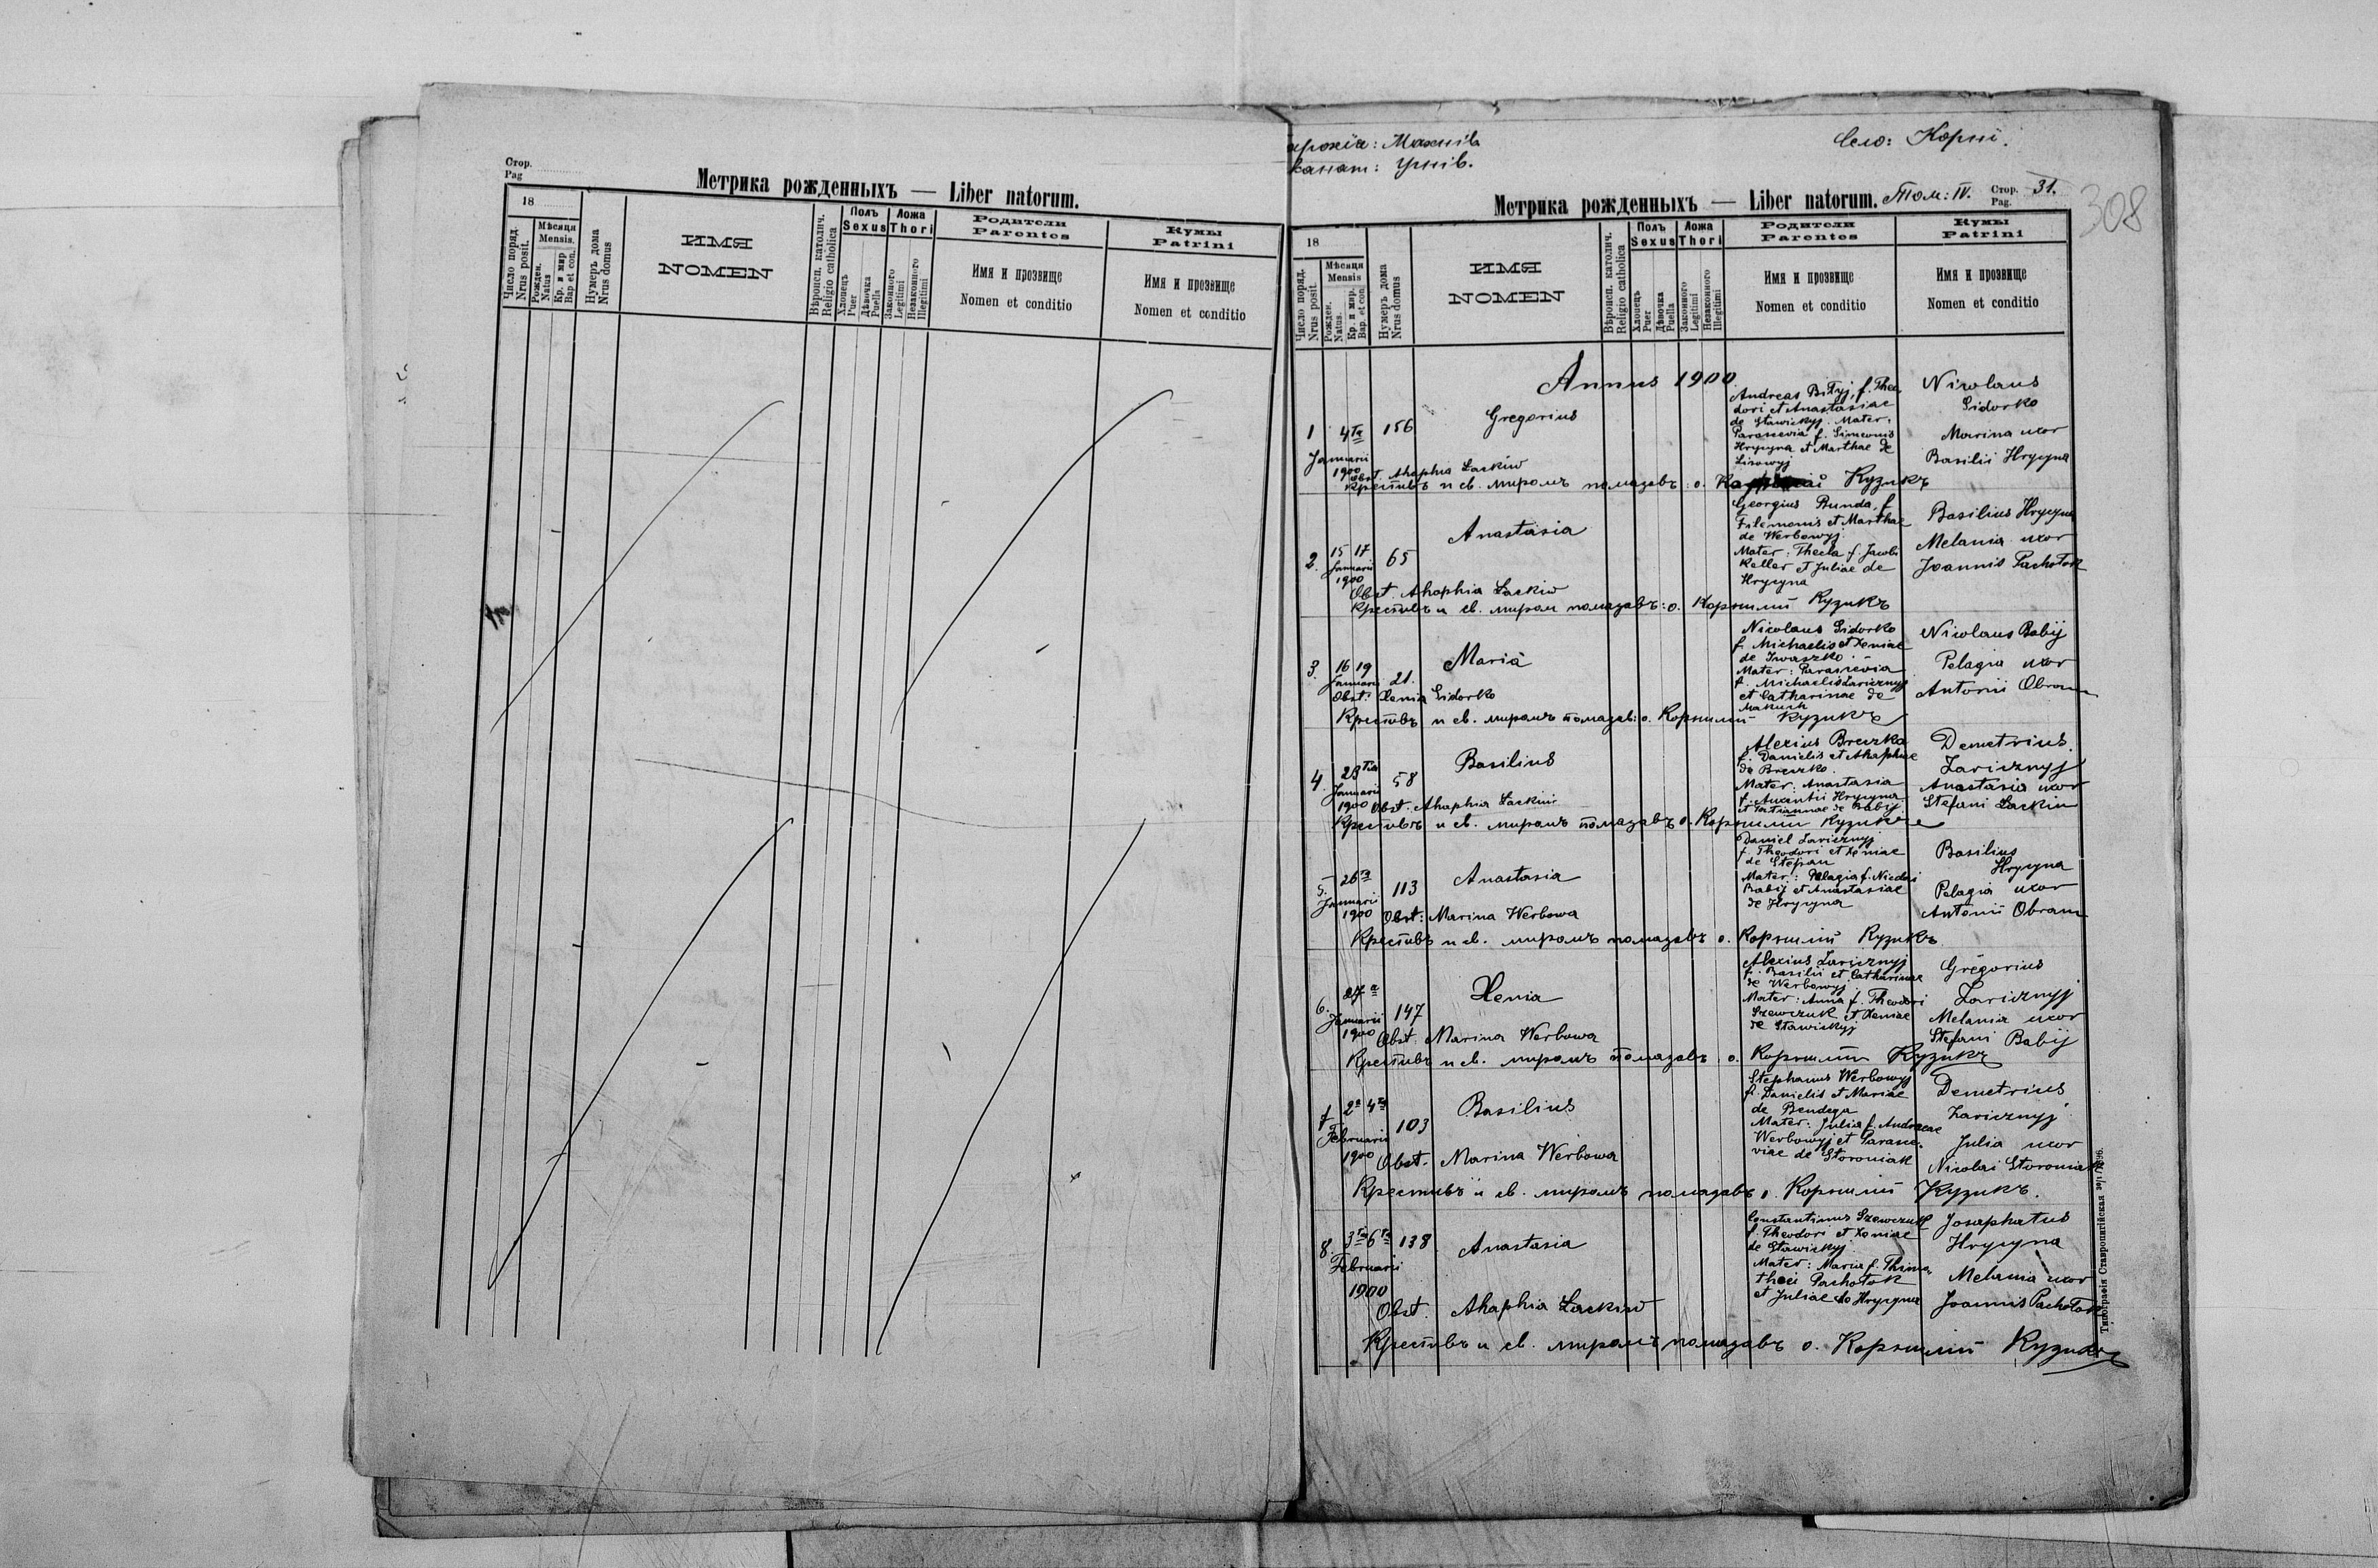 Стор.
Pag
Метрика рожденныхъ — Liber natorum.
18
Число поряд.
Nrus posit.
Мѣсяця
Mensis.
Рожден.
Natus
Кр. и мир
Bap et con.
Нумеръ дома
Nrus domus
ИМЯ
NOMEN
Вѣроисп. католич.
Religio catholica
Полъ
Sexus
Хлопецъ
Puer
Дѣвочка
Puella
Ложа
Thori
Законного
Legitimi
Незаконного
Illegitimi
Родители
Parentes
Имя и прозвище
Nomen et conditio
Кумы
Patrini
Имя и прозвище
Nomen et conditio
Махнів
Село: Корні.
Угнів.
Метрика рожденныхъ — Liber natorum. Том: IV. Стор. 31.
Pag.
308
18
Число поряд.
Nrus posit.
Мѣсяця
Mensis
Рожден.
Natus.
Кр. и мир.
Bap. et con.
Нумеръ дома
Nrus domus
ИМЯ
NOMEN
Вѣроисп. католич.
Religio catholica
Полъ
Sexus
Хлопецъ
Puer
Дѣвочка
Puella
Ложа
Thori
Законного
Legitimi
Незаконного
Illegitimi
Родители
Parentes
Имя и прозвище
Nomen et conditio
Кумы
Patrini
Имя и прозвище
Nomen et conditio
Annus 1900
1 4ta Januarii 1900 156 Gregorius
Andreas Biłyj, f. Theo
dori et Anastasiae
de Stawickyj. Mater:
Parascevia f. Simeonis
Hrycyna et Marthae de
Lisowyj
Nicolaus
Sidorko
Marina uxor
Basilii Hrycyna
Obst. Ahaphia Łackiw
Крестивъ и св. миромъ помазавъ: о. Кузикъ
2. 15 17 Januarii 1900 65 Anastasia
Georgius Bunda, f
Filemonis et Marthae
de Werbowyj.
Mater: Thecla f. Jacobi
Keller et Juliae de
Hrycyna
Basilius Hrycyna
Melania uxor
Joannis Pachołok
Obst. Ahaphia Łackiw
Крестивъ и св. миром помазавъ: о. Корнилій Кузикъ
3. 16 19 Januarii 21. Maria
Nicolaus Sidorko
f. Michaelis et Xeniae
de Iwaszko.
Mater: Parascevia
f. Michaelis Zaricznyj
et Catharinae de
Makuch
Nicolaus Babij
Pelagia uxor
Antonii Obram
Obst: Xenia Sidorko
Крестивъ и св. миромъ помазав: о. Корнилій Кузикъ
4. 23tia Januarii 1900 58 Basilius
Alexius Breczko
f. Danielis et Ahaphiae
de Breczko.
Mater: Anastasia
f. Auxentii Hrycyna
et Tatiannae de Babij.
Demetrius
Zaricznyj
Anastasia uxor
Stefani Łackiw
Obst. Ahaphia Łackiw
Крестивъ и св. миромъ помазавъ о. Корнилій Кузикъ
5. 26ta Januarii 1900 113 Anastasia
Daniel Zaricznyj
f. Theodori et Xeniae
de Stepan
Mater: Pelagia f. Nicolai
Babij et Anastasiae
de Hrycyna
Basilius
Hrycyna
Pelagia uxor
Antonii Obram
Obst: Marina Werbowa
Крестивъ и св. миромъ помазавъ о. Корнилій Кузикъ
6. 27a Januarii 1900 147 Xenia
Alexius Zaricznyj
f. Basilii et Catharinae
de Werbowyj
Mater: Anna f. Theodori
Szewczuk et Xeniae
de Stawickyj
Gregorius
Zaricznyj
Melania uxor
Stefani Babij
Obst. Marina Werbowa
Крестивъ и св. миромъ помазавъ: о. Корнилій Кузикъ
7 2a 4ta Februarii 1900 103 Basilius
Stephanus Werbowyj
f. Danielis et Mariae
de Bendega
Mater: Julia f. Andreae
Werbowyj et Parasce-
viae de Storoniak
Demetrius
Zaricznyj
Julia uxor
Nicolai Storoniak
Obst. Marina Werbowa
Крестивъ и св. миромъ помазавъ о. Корнилій Кузикъ.
8. 3tia 6ta Februarii 1900 138 Anastasia
Constantinus Szewczuk
f. Theodori et Xeniae
de Stawickyj.
Mater: Maria f. Thimo
thei Pachołok
et Juliae de Hrycyna
Josaphatus
Hrycyna
Melania uxor
Joannis Pachołok
Obst. Ahaphia Łackiw
Крестивъ и св. миромъ помазавъ о. Корнилій Кузикъ
Типографія Ставропигійская